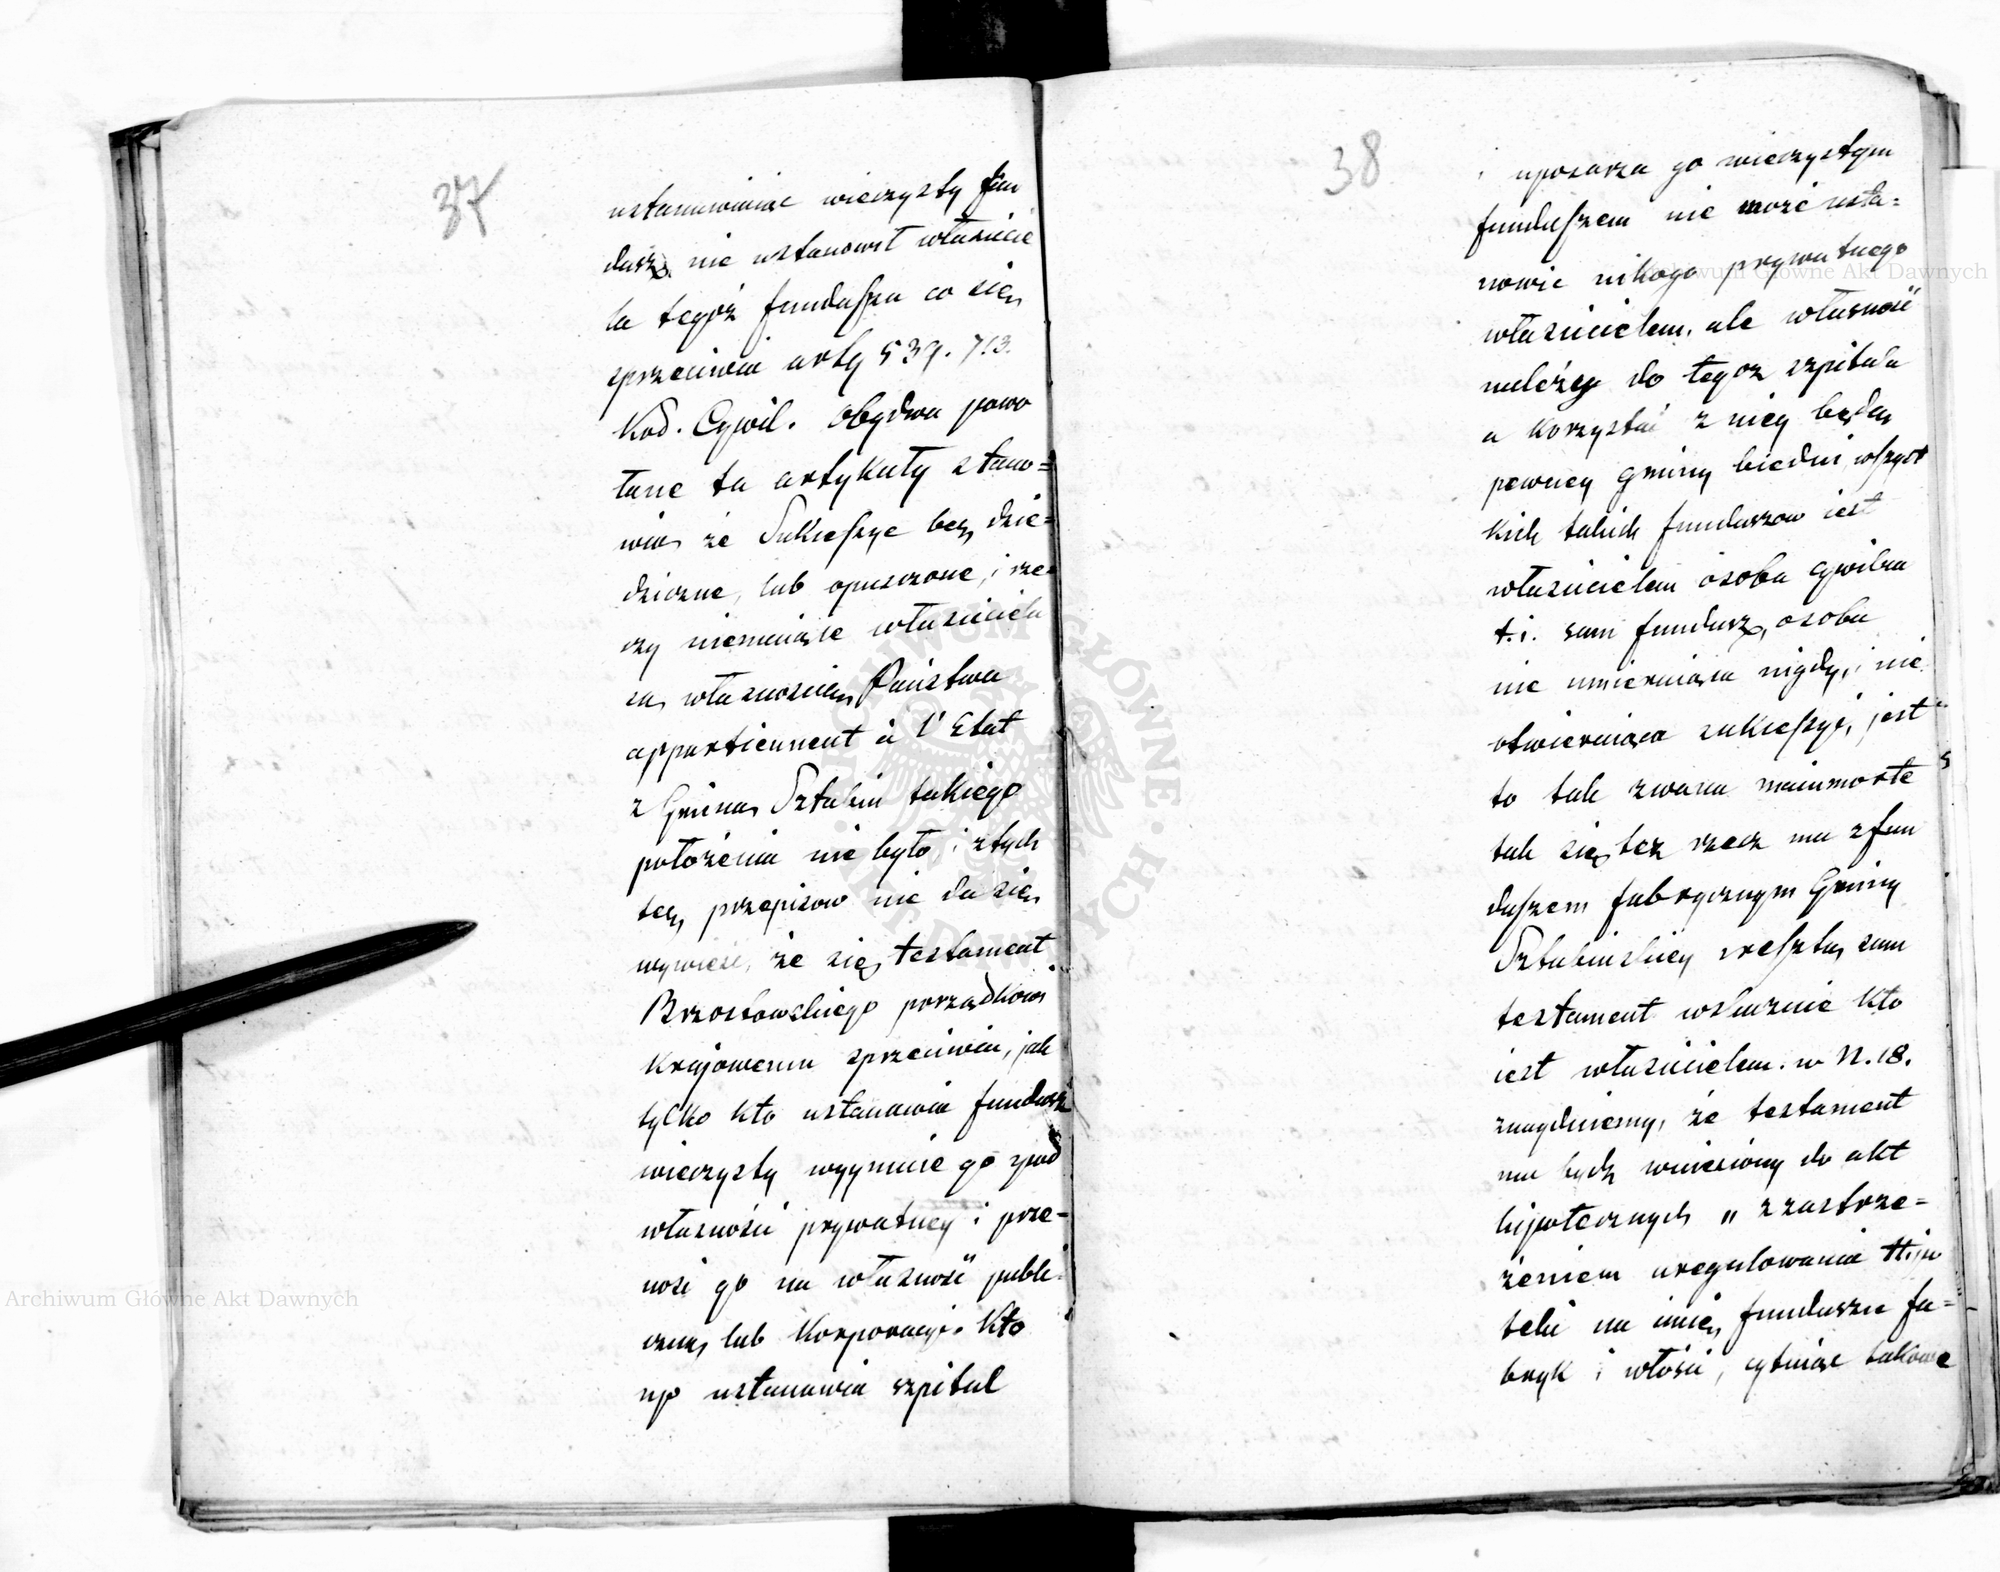 37
ustanawiaiąc wieczysty fun
dusz, nie ustanowił właścicie
la tegoż funduszu co się
sprzeciwia arty 539. 713.
Kod. Cywil. Obydwa powo
łane tu artykuły stano=
wią że Sukcessye bez dzie=
dziczne, lub opuszczone, i rze
czy niemaiące właściciela
są własnością Państwa
appartiennent à l'Etat
z Gminą Sztabin takiego
położenia nie było, i z tych
też przepisow nie da się
wywieść, że się testament
Brzostowskiego porządkowi
Krajowemu sprzeciwia, jak
tylko kto ustanawia fundusz
wieczysty wyymuie go z pod
własności prywatney i prze-
nosi go na własność publi
czną lub Korporacyi. Kto
np ustanawia szpital
38
i uposaża go wieczystym
funduszem nie może usta=
nowić nikogo prywatnego
właścicielem, ale własność
należy do tegoż szpitala
a korzystać z niey będą
pewney gminy biedni, wszyst
kich takich funduszow iest
właścicielem osoba cywilna
t.i. sam fundusz, osoba
nie umieraiąca nigdy, i nie
otwieraiąca sukcessyi, jest
to tak zwana mainmorte
tak się też rzecz ma z fun
duszem fabrycznym Gminy
Sztabinskiey zresztą sam
testament wskazuie kto
iest właścicielem. w N. 18.
znaydziemy, że testament
ma bydź wniesiony do akt
hipotecznych „ z zastrze=
żeniem uregulowania Hipo
teki na imię funduszu fa=
bryk i włości, cytuiąc takowe
Archiwum Główne Akt Dawnych
Archiwum Główne Akt Dawnych